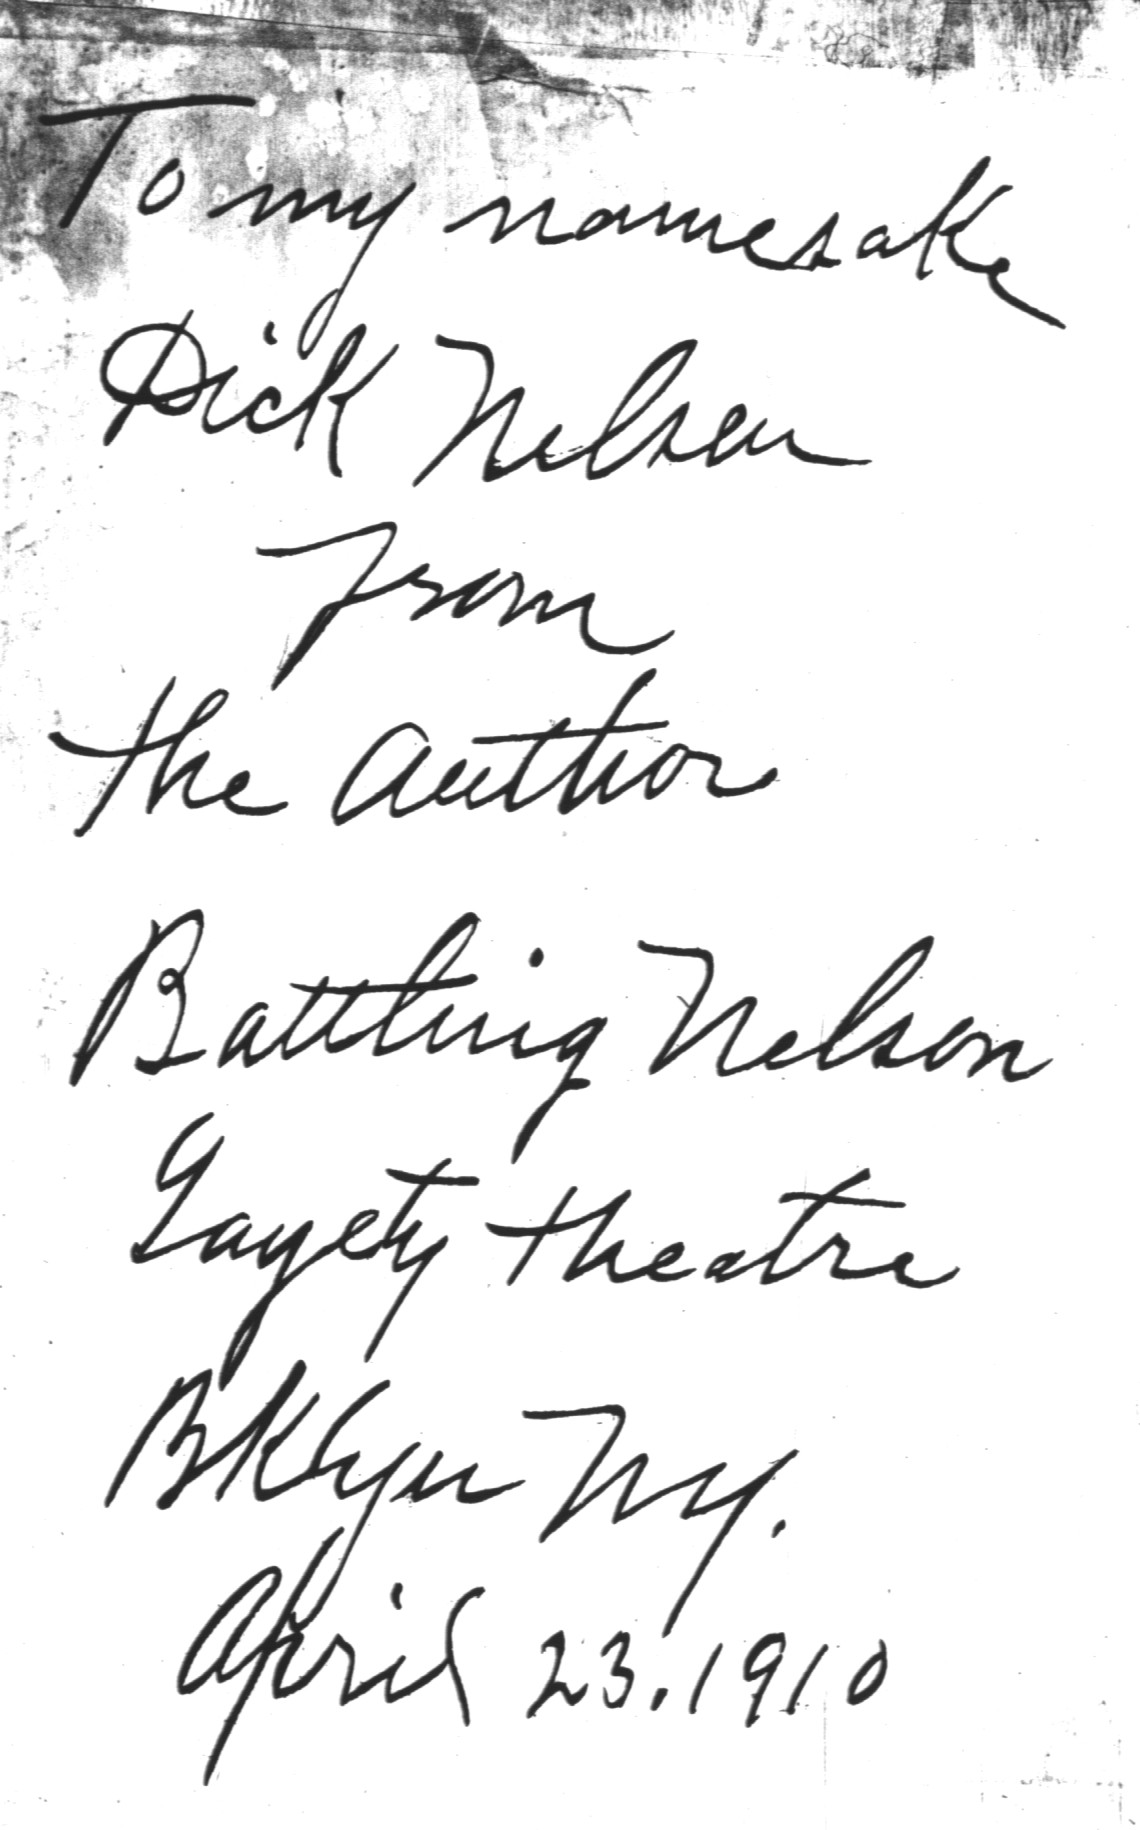 To my namesake
Dick Nelson
From
the Author
Battling Nelson
Gayety theatre
BKlyn NY.
April 23.1910